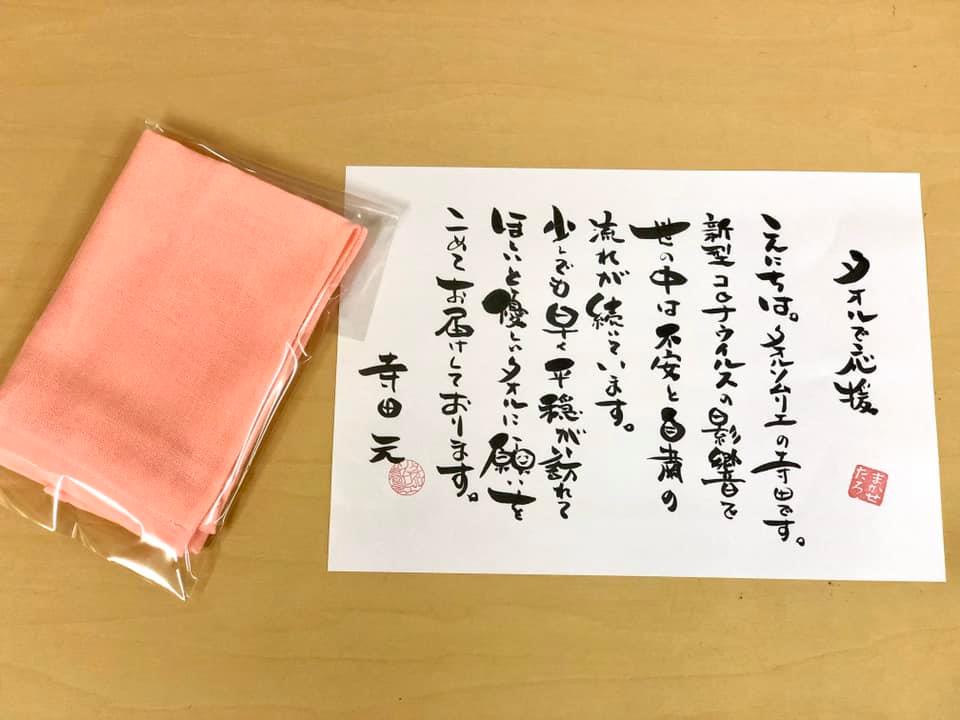 タオルで応援
まかせ
たろう
こんにちは。タオルソムリエの寺田です。
新型コロナウイルスの影響で
世の中は不安と自粛の
流れが続いています。
少しでも早く平穏が訪れて
ほしいと優しいタオルに願いを
こめてお届けしております。
寺田 元